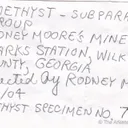 METHYST - SUBPAR
ROUP
DNEY MOORE'S MINE
ARKS STATION, WILK
UNTY, GEORGIA
lected by RODNEY M
/04
HYST SPECIMEN NO. 7